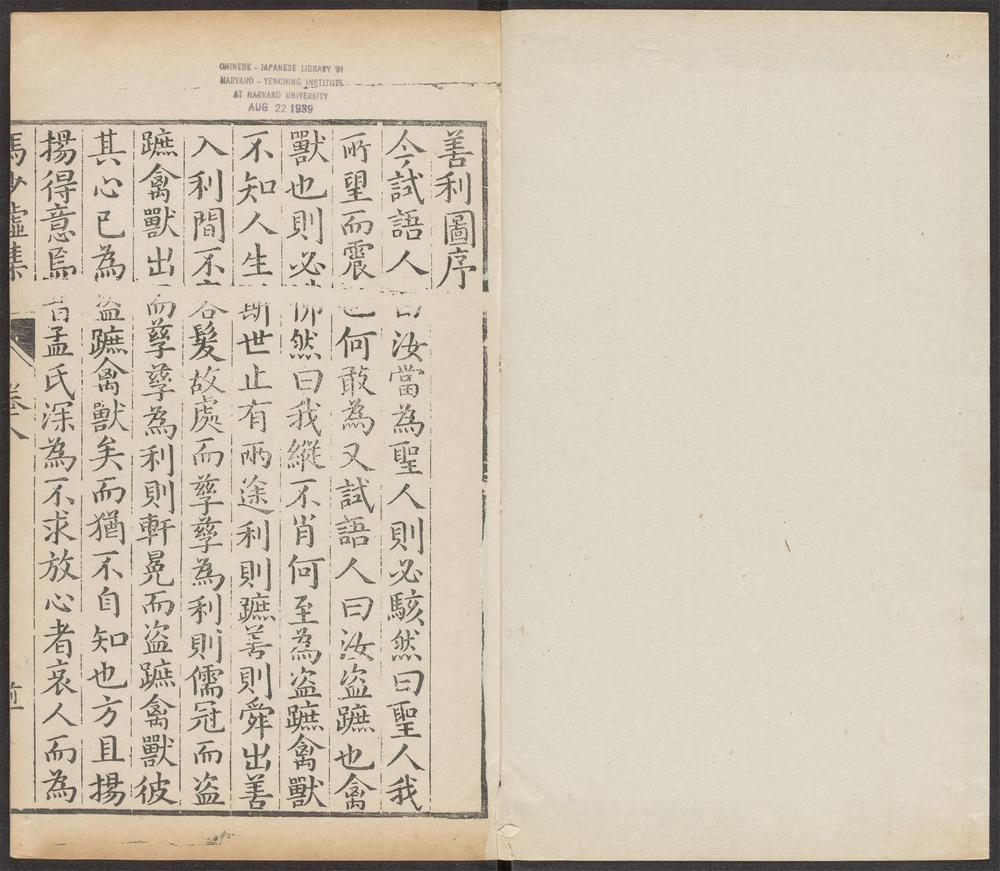 CHINESE - JAPANESE LIBRARY OF
HARVARD - YENCHING INSTITUTE
AT HARVARD UNIVERSITY
AUG 22 1939
善利圖序
今試語人曰汝當為聖人則必駭然曰聖人我
所望而震也何敢為又試語人曰汝盜蹠也禽
獸也則必怫然曰我縱不肖何至為盜蹠禽獸
不知人生斯世止有兩途利則蹠善則舜出善
入利間不容髮故處而孳孳為利則儒冠而盜
蹠禽獸出而孳孳為利則軒冕而盜蹠禽獸彼
其心已為盜蹠禽獸矣而猶不自知也方且揚
揚得意焉昔孟氏深為不求放心者哀人而為
馮少墟集 卷八